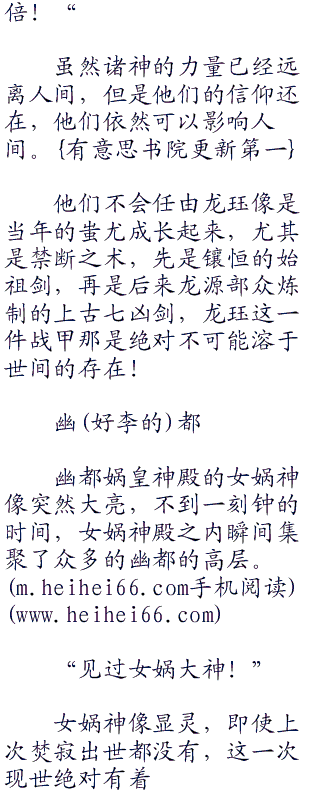 倍！“
虽然诸神的力量已经远
离人间，但是他们的信仰还
在，他们依然可以影响人
间。{有意思书院更新第一}
他们不会任由龙珏像是
当年的蚩尤成长起来，尤其
是禁断之术，先是镶恒的始
祖剑，再是后来龙源部众炼
制的上古七凶剑，龙珏这一
件战甲那是绝对不可能溶于
世间的存在！
幽(好李的)都
幽都娲皇神殿的女娲神
像突然大亮，不到一刻钟的
时间，女娲神殿之内瞬间集
聚了众多的幽都的高层。
(m.heihei66.com手机阅读)
(www.heihei66.com)
“见过女娲大神！”
女娲神像显灵，即使上
次焚寂出世都没有，这一次
现世绝对有着